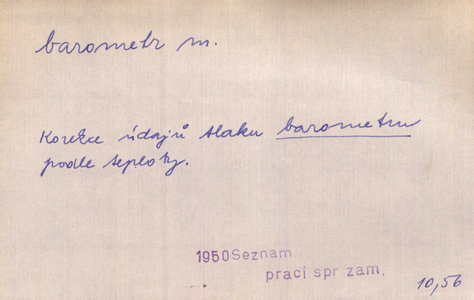 barometr m.
Korekce údajů tlaku barometru
podle teploty.
1950 Seznam
prací spr zam,
10,56